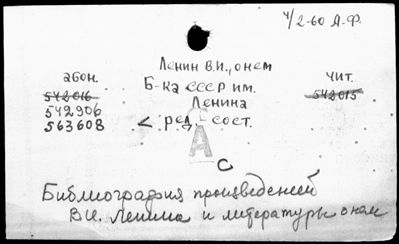 4/2-60 А.Ф.
Ленин В.И., о нем
абон. Б-ка СССР им. чит.
542016 Ленина 542015
542906
563608 < ред. сост.
А
С
Библиография произведений
В.И. Ленина и литературы о нем